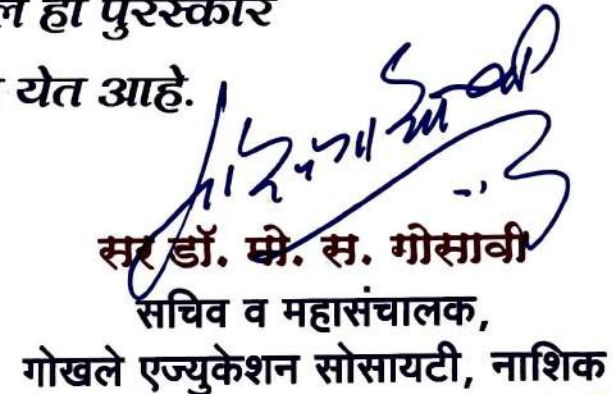 ल हा पुरस्कार
येत आहे.
सर डॉ. मो. स. गोसावी
सचिव व महासंचालक,
गोखले एज्युकेशन सोसायटी, नाशिक